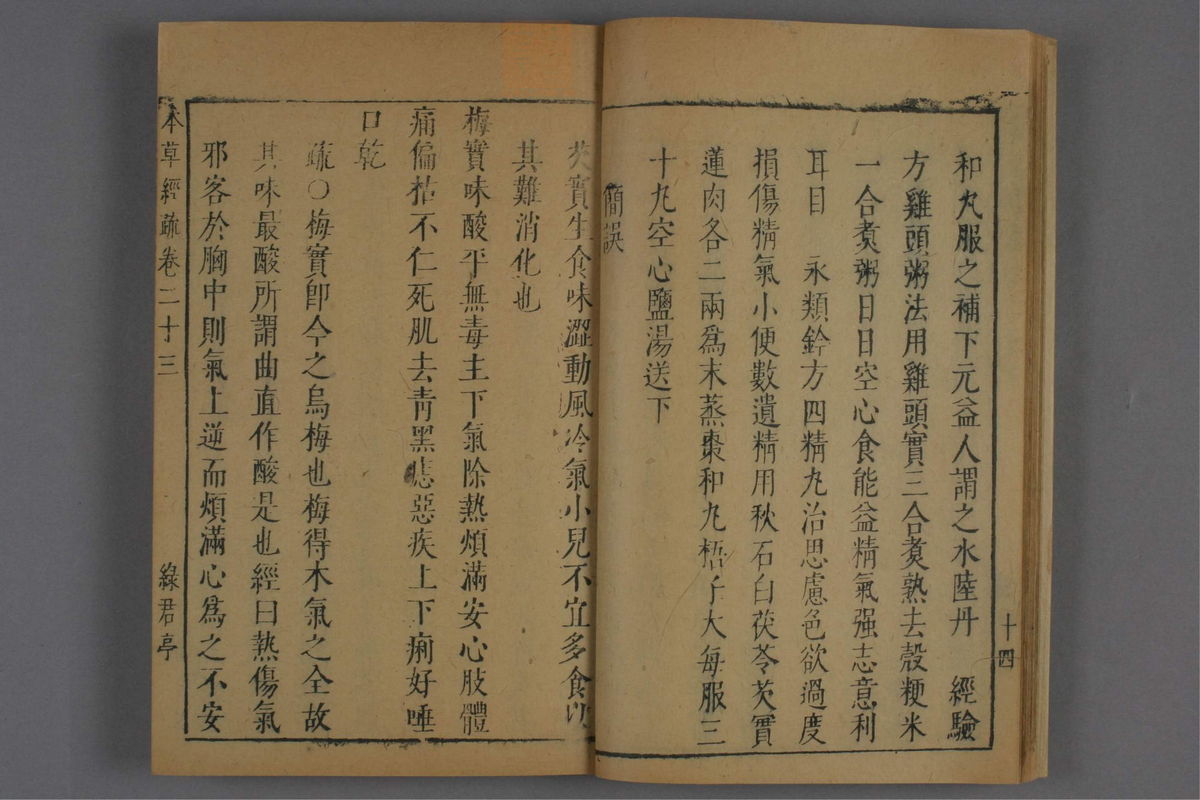 和丸服之補下元益人謂之水陸丹　經驗
方雞頭粥法用雞頭實三合煑熟去殼粳米
一合煑粥日日空心食能益精氣强志意利
耳目　永類鈐方四精丸治思慮色欲過度
損傷精氣小便數遺精用秋石白茯苓芡實
蓮肉各二兩爲末蒸棗和丸梧子大每服三
十丸空心鹽湯送下
簡誤
十四
芡實生食味澀動風冷氣小兒不宜多食以
其難消化也
梅實味酸平無毒主下氣除熱煩滿安心肢體
痛偏枯不仁死肌去靑黑痣惡疾止下痢好唾
口乾
疏〇梅實卽今之烏梅也梅得木氣之全故
其味最酸所謂曲直作酸是也經曰熱傷氣
邪客於胸中則氣上逆而煩滿心爲之不安
本草經疏卷二十三
綠君亭